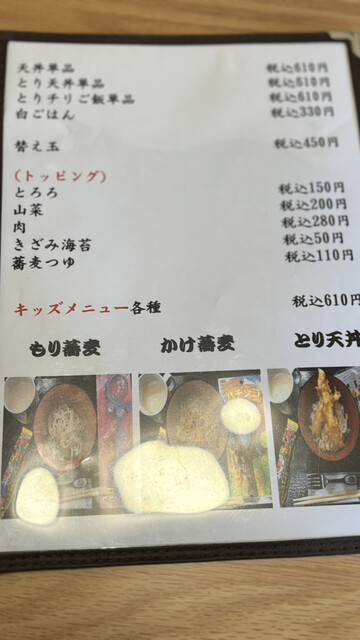 天丼単品 税込610円
とり天丼単品 税込610円
とりチリご飯単品 税込610円
白ごはん 税込330円
替え玉 税込450円
(トッピング)
とろろ 税込150円
山菜 税込200円
肉 税込280円
きざみ海苔 税込50円
蕎麦つゆ 税込110円
キッズメニュー各種 税込610円
もり蕎麦 かけ蕎麦 とり天丼